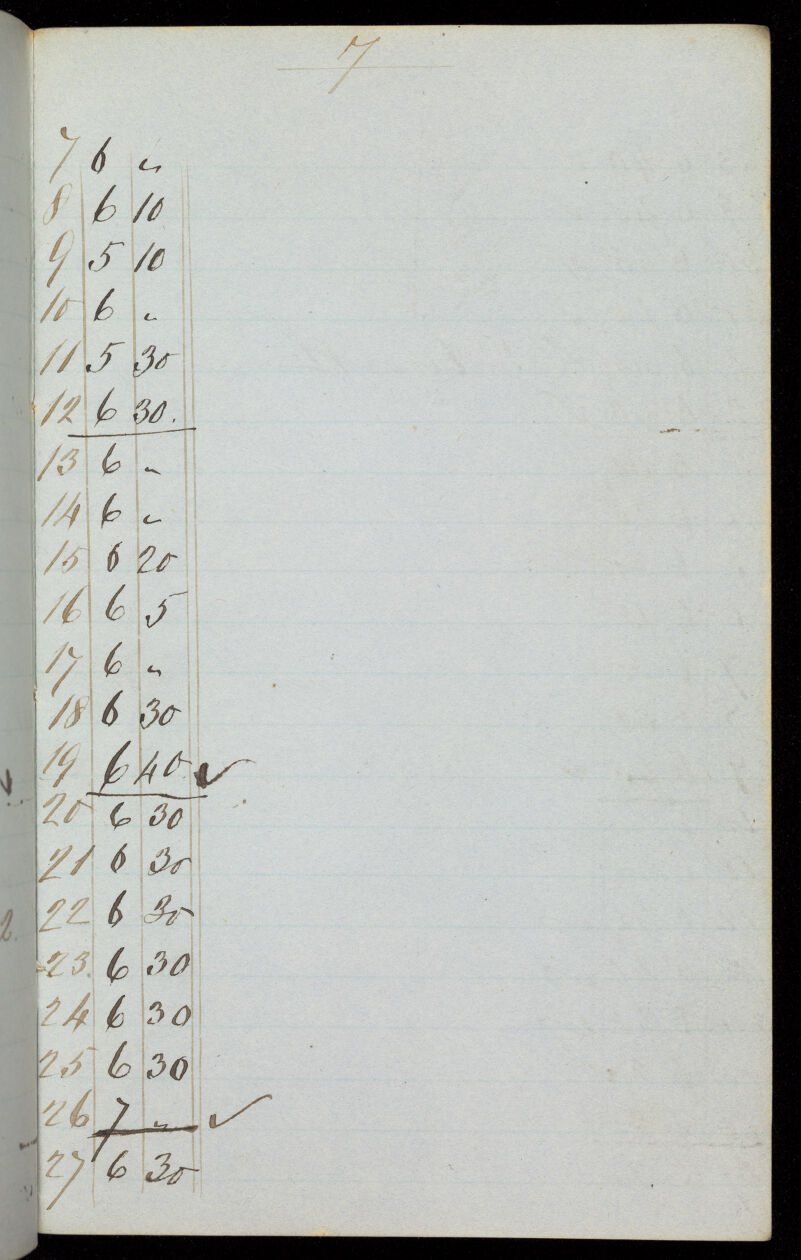 7
7 6 "
8 6 10
9 5 10
10 6 "
11 5 30
12 6 30.
13 6 "
14 6 "
15 6 20
16 6 5
17 6 "
18 6 30
19 6 40 ✓
20 6 30
21 6 30
22 6 30
23. 6 30
24 6 30
25 6 30
26 7 " ✓
27 6 30